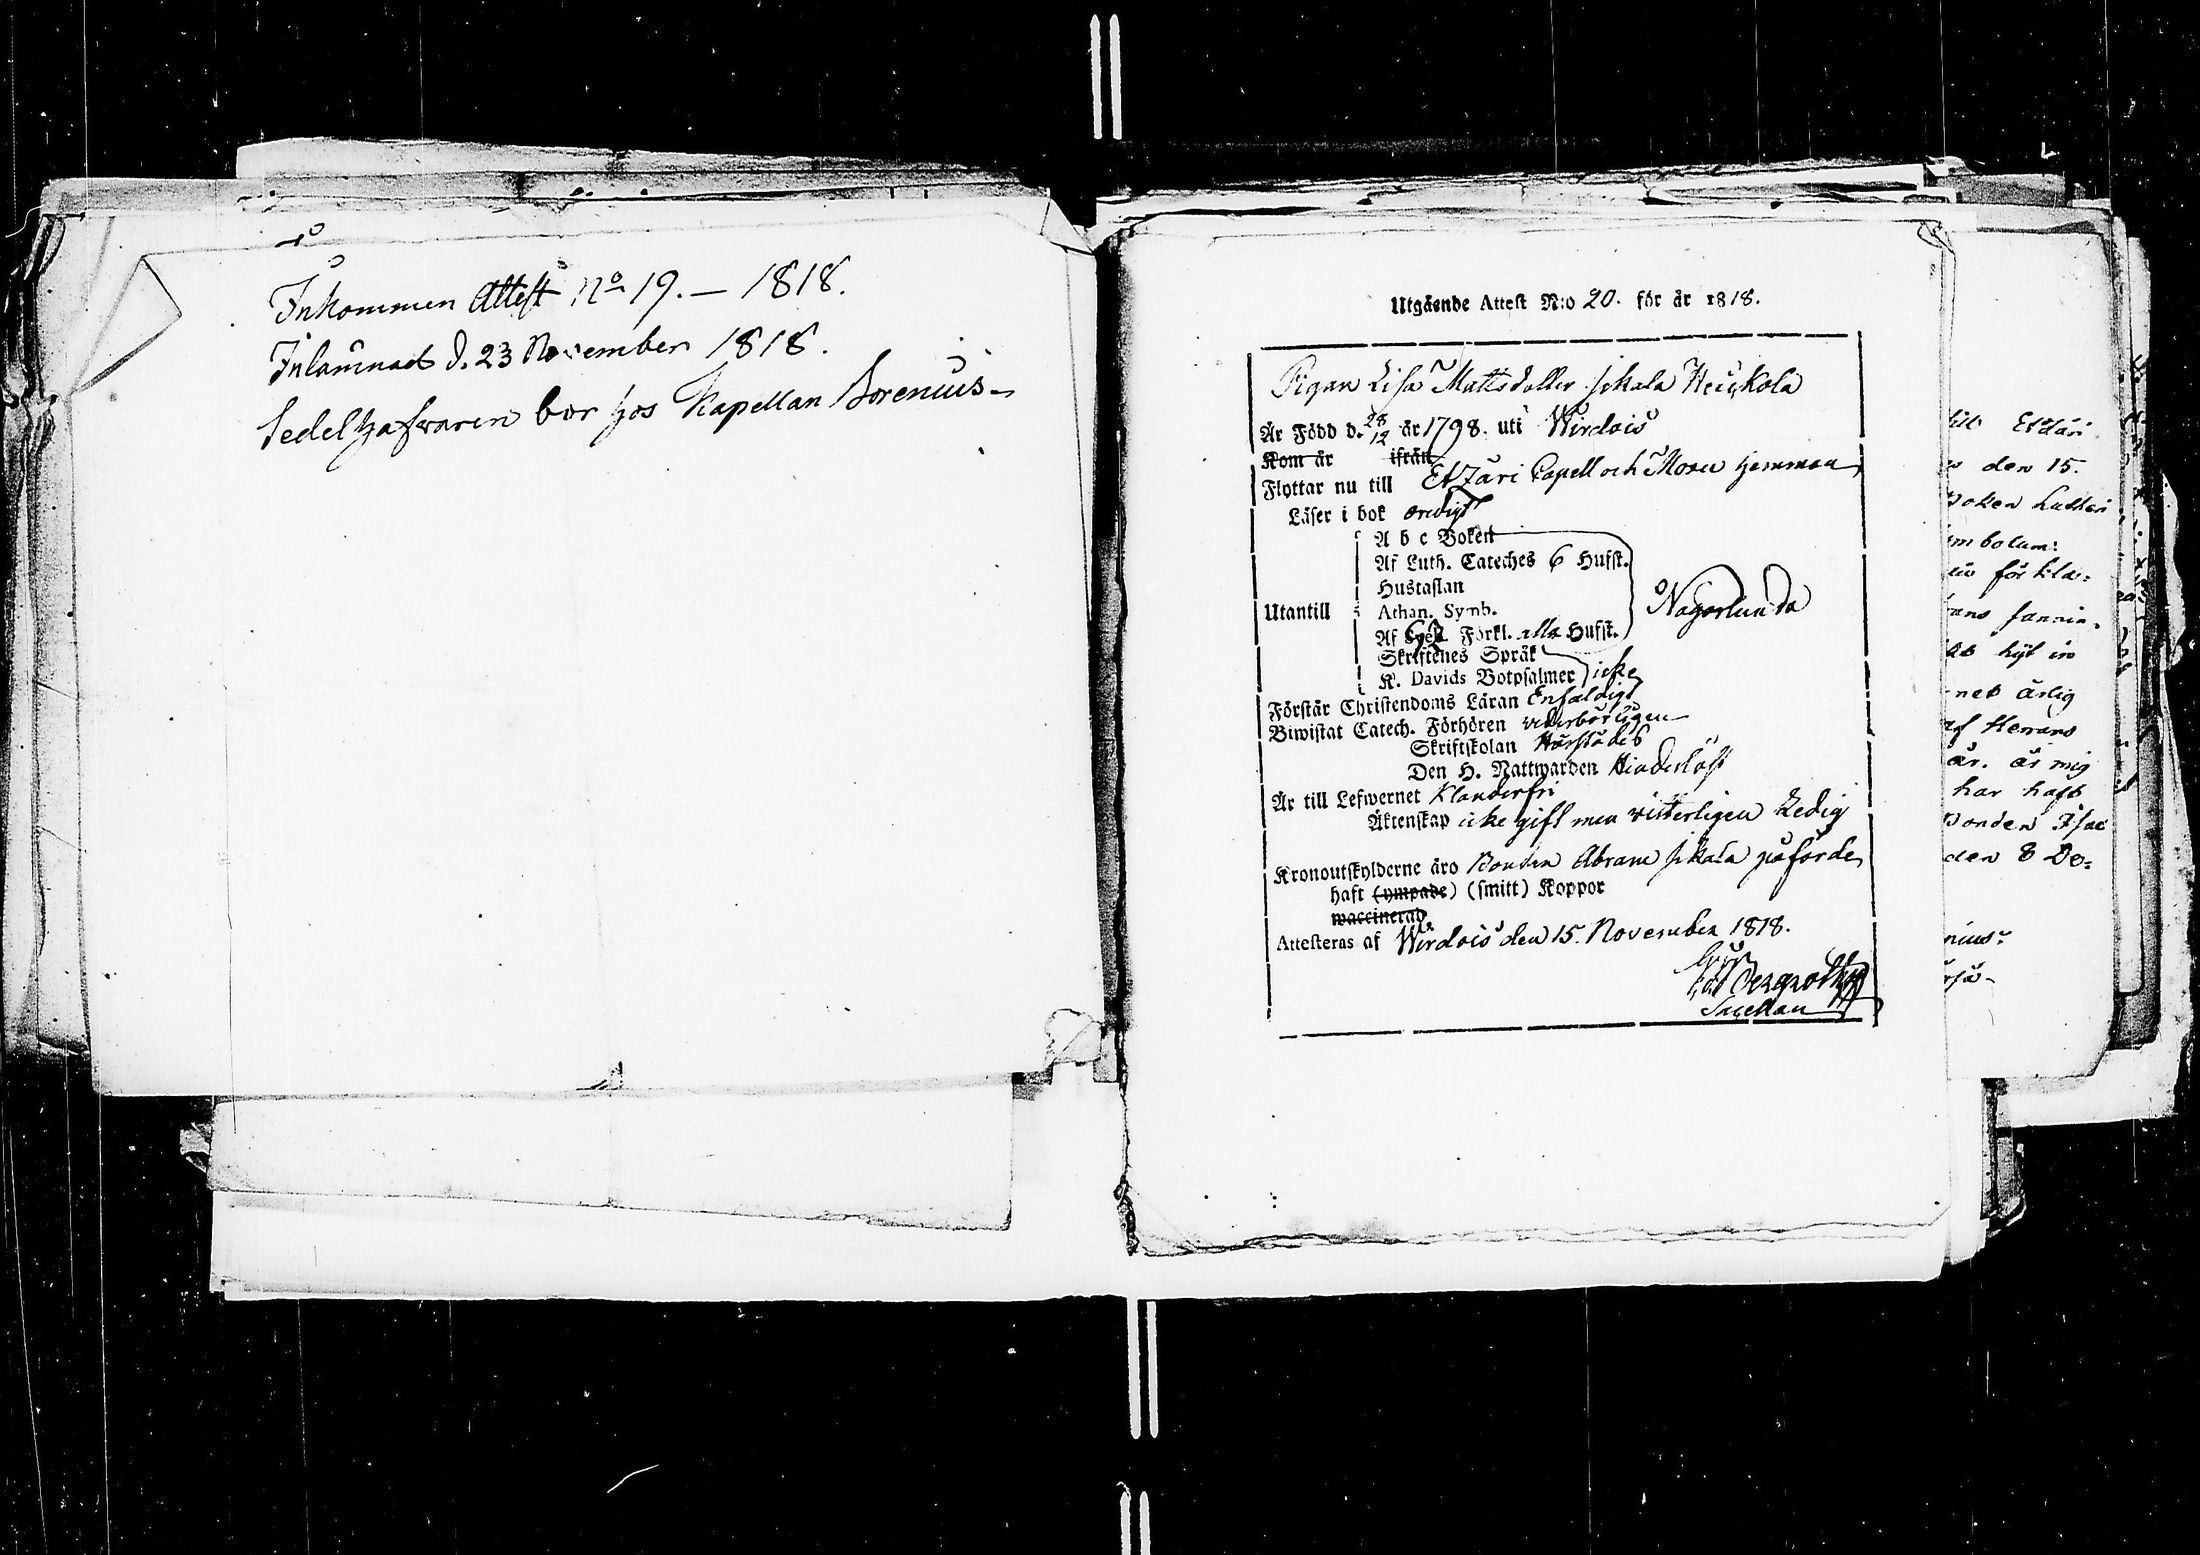 Inkommen Attest No 19. – 1818.
Inlämnad d. 23 November 1818.
Sedelhafwaren bor hos Kapellan Sorenius –
Utgående Attest N:o 20. för år 1818.
Pigan Lisa Mattsdotter Heiskola
Är Född d. 28/12 år 1798. uti Wirdois
Kom år ifrån
Flyttar nu till Etzäri Capell och Hemman
Läser i bok ordigt
A b c Boken
Af Luth. Cateches 6 Hufst.
Hustaflan
Utantill Athan. Symb. Någorlunda
Af Sveb. Förkl. alla Hufst.
Skriftenes Språk
K. Davids Botpsalmer icke
Förstår Christendoms Läran Enfaldigt
Biwistat Catech. Förhören wederbörligen
Skriftskolan Härstädes
Den H. Nattwarden Hinderlöst
Är till Lefwernet Klanderfri
Äktenskap icke gift men witterligen Ledig
Kronoutskylderne äro Bonden Abram påförde
haft (ympade) (smitt) Koppor
waccinerad
Attesteras af Wirdois den 15. November 1818.
Bergroth
Sacellan
till Etsäri
den 15.
Boken Lutheri
mbolum:
för kla=
ans sannin=
hijt in
net ärlig
af Herrans
år. är mig
har haft
Bonden Isac
den 8 De=
nius